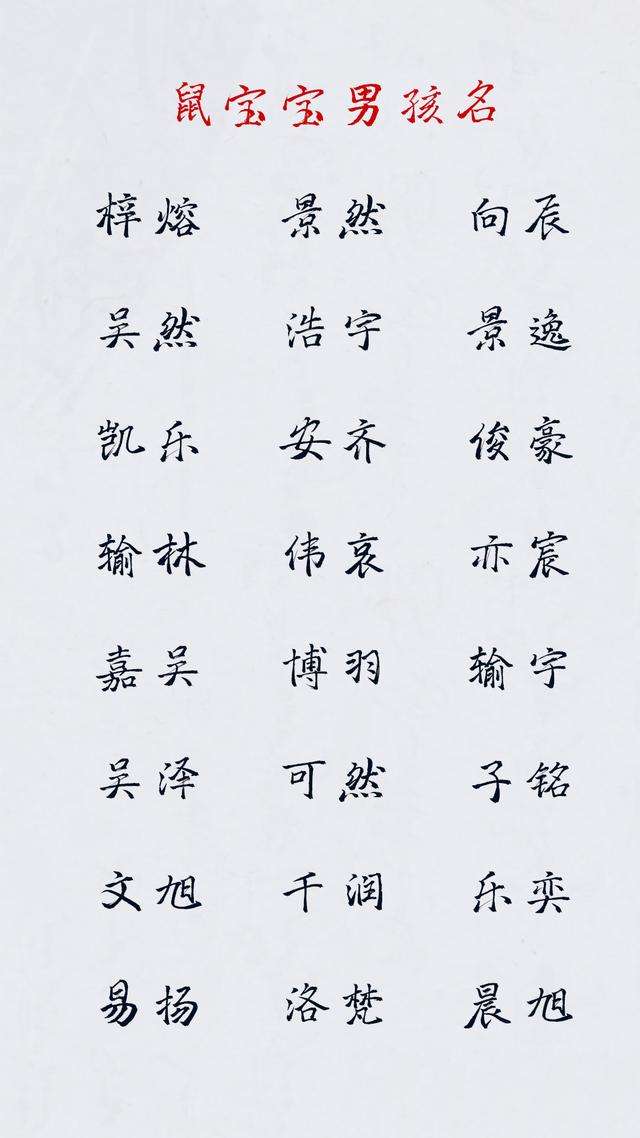 鼠宝宝男孩名
梓熔 景然 向辰
吴然 浩宇 景逸
凯乐 安齐 俊豪
输林 伟哀 亦宸
嘉吴 博羽 输宇
吴泽 可然 子铭
文旭 千润 乐奕
易扬 洛梵 晨旭